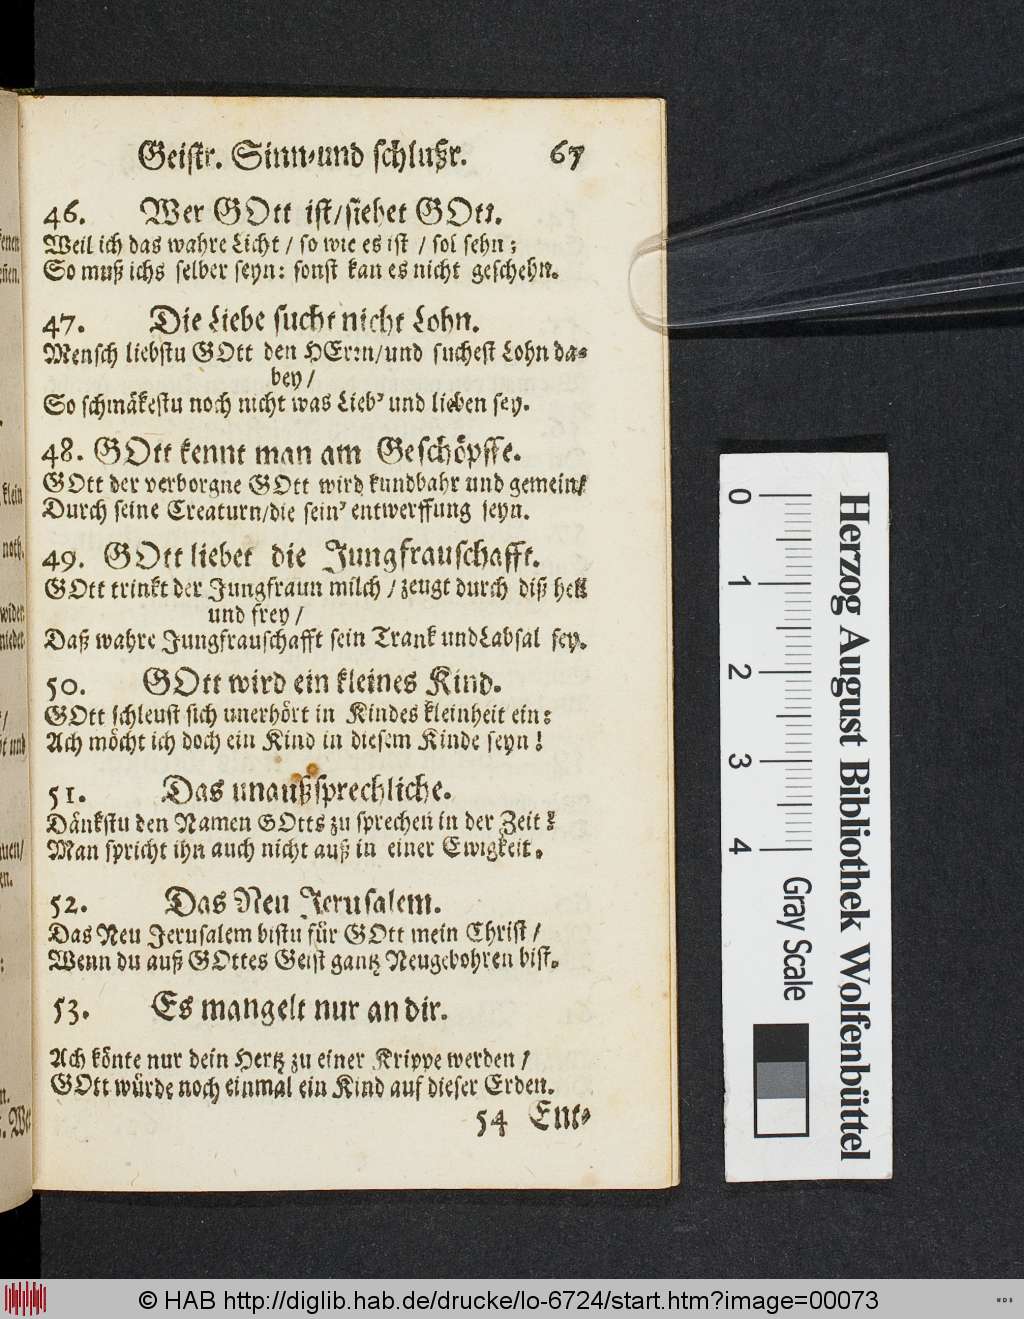 Geistr. Sinn-und schlußr. 67
46. Wer GOtt ist/siehet GOtt.
Weil ich das wahre Licht / so wie es ist / sol sehn;
So muß ichs selber seyn: sonst kan es nicht geschehn.
47. Die Liebe sucht nicht Lohn.
Mensch liebstu GOtt den HErrn/und suchest Lohn da-
bey /
So schmäkestu noch nicht was Lieb' und lieben sey.
48. GOtt kennt man am Geschöpffe.
GOtt der verborgne GOtt wird kundbahr und gemein/
Durch seine Creaturn/die sein' entwerffung seyn.
49. GOtt liebet die Jungfrauschafft.
GOtt trinkt der Jungfraun milch / zeugt durch diß hell
und frey /
Daß wahre Jungfrauschafft sein Trank und Labsal sey.
50. GOtt wird ein kleines Kind.
GOtt schleust sich unerhört in Kindes kleinheit ein:
Ach möcht ich doch ein Kind in diesem Kinde seyn!
51. Das unaußsprechliche.
Dänkstu den Namen GOtts zu sprechen in der Zeit?
Man spricht ihn auch nicht auß in einer Ewigkeit.
52. Das Neu Jerusalem.
Das Neu Jerusalem bistu für GOtt mein Christ /
Wenn du auß GOttes Geist gantz Neugebohren bist.
53. Es mangelt nur an dir.
Ach könte nur dein Hertz zu einer Krippe werden /
GOtt würde noch einmal ein Kind auf dieser Erden.
54 Ent-
Herzog August Bibliothek Wolfenbüttel
0 1 2 3 4 Gray Scale
© HAB http://diglib.hab.de/drucke/lo-6724/start.htm?image=00073